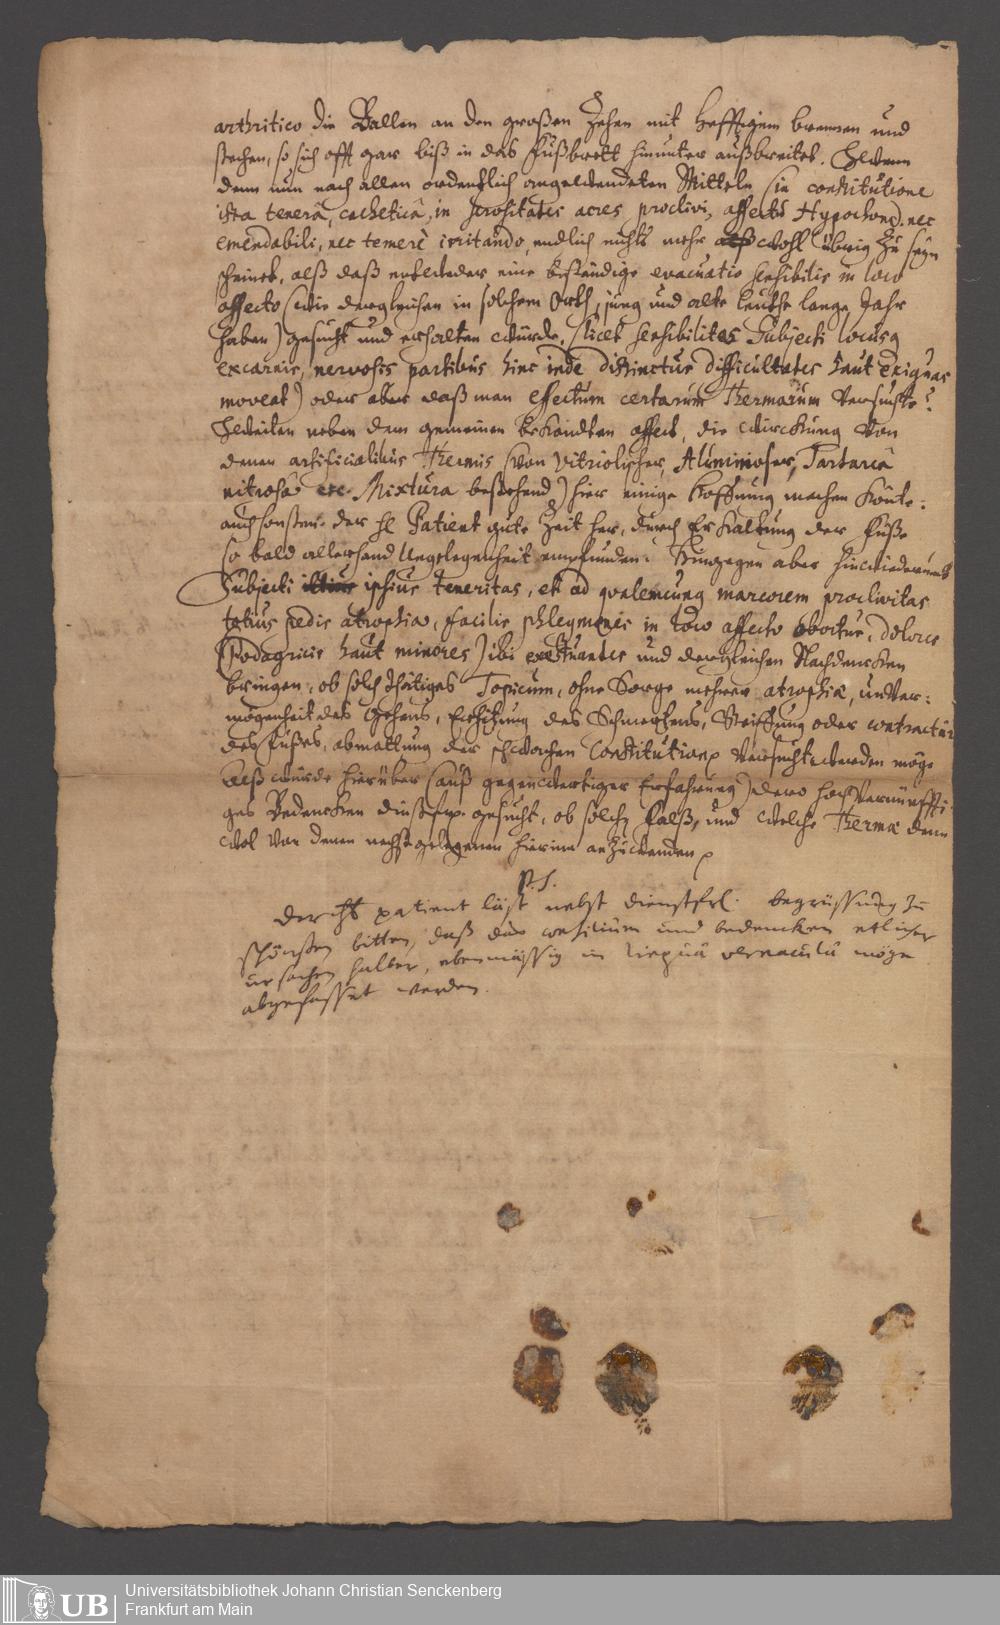 arthritico die Ballen an den großen Zehen mit hefftigem brennen und
stechen, so sich offt gar biß in das fußbrett hinunter außbreitet. Wann
dann nun nach allen ordentlich angewendeten Mitteln (in constitutione
ista tenerâ, cachecticâ, in serositates acres proclivi, affectu Hypochond. nec
emendabili, nec temerè irritando, endlich nichts mehr wohl übrig zu seyn
scheinet, alß daß entweder eine beständige evacuatio sensibilis in loco
affecto (wie dergleichen in solchem Orth, jung und alte leuthe lange Jahr
haben) gesucht und erhalten würde, (licet sensibilitas Subjecti locusq
excarnis, nervosis partibus hinc inde distinctus difficultates haut exiguas
moveat) oder aber daß man effectum certarum Thermarum versuchte?
Weilen neben dem gemeinen bekandten effect, die würckung von
denen artificialibus Thermis (von Vitriolischer, Aluminoser, Tartareâ
nitrosâ etc. Mixtura bestehend) hier einige hoffnung machen könte:
auch sonsten der H Patient gute Zeit her, durch Erkaltung der füße
so bald allerhand Ungelegenheit empfunden: Hingegen aber hinwiederumb
Subjecti ipsius teneritas, et ad qualemcunq marcorem proclivitas
totius pedis atrophia, facilis phlegmonis in loco affecto obortus, dolores
(Podagricis haut minores) ibi exæstuantes und dergleichen Nachdencken
bringen, ob solch Topicum, ohne Sorge mehrer atrophiæ, unver:
mögenheit des Gehens, Erhitzung des Schmertzens, Steiffung oder contractur
des fußes, abmattung der schwachen Constitution versucht werden möge
Alß würde hierüber (auß gegenwertiger Erfahrung) dero hochvernünffti
ges Bedencken gesucht, ob solche, und welche Thermæ dann
wol von denen nechstgelegenen hierinn anzuwenden
P.S.
Der H patient läst nebst dienstfrl. begrüssung zu
schönsten bitten, daß das consilium und bedencken etlicher
ursachen halber, ebenmässig in linguâ vernaculâ möge
abgefasset werden.
UB
Universitätsbibliothek Johann Christian Senckenberg
Frankfurt am Main